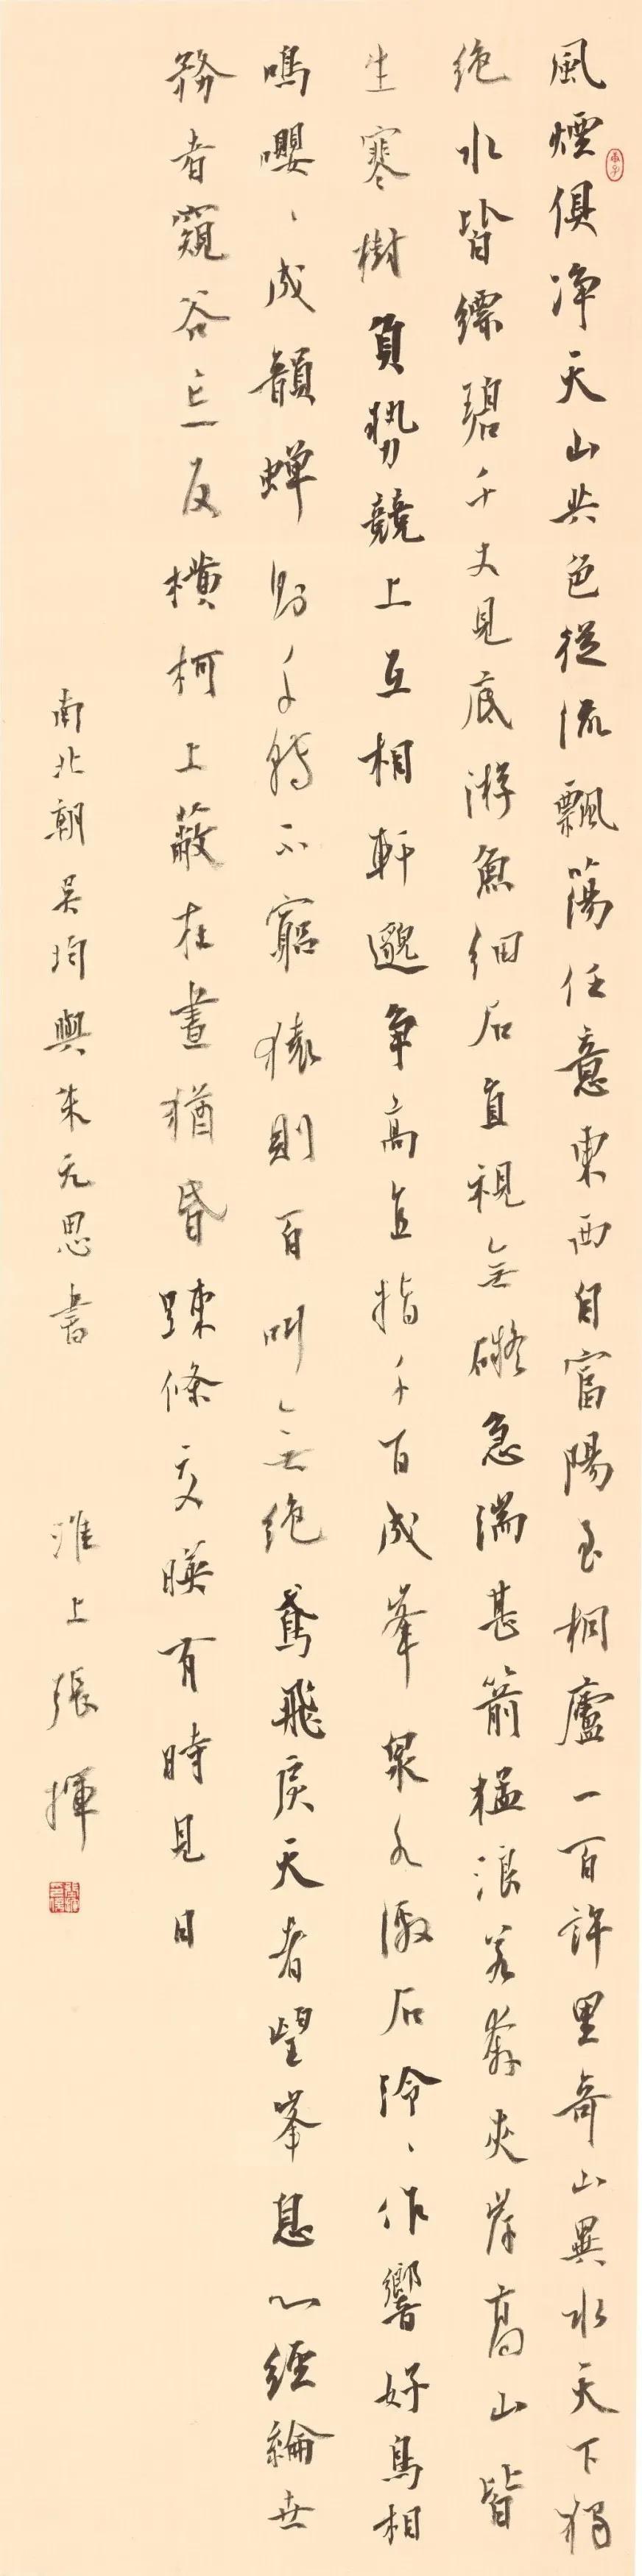 風煙俱净天山共色從流飄蕩任意東西自富陽至桐廬一百許里奇山異水天下獨
絶水皆縹碧千丈見底游魚細石直視無礙急湍甚箭猛浪若奔夾岸高山皆
生寒樹負勢競上互相軒邈争高直指千百成峯泉水激石泠、作響好鳥相
鳴嚶、成韻蟬則千轉不窮猿則百叫無絶鳶飛戾天者望峯息心經綸世
務者窺谷忘反橫柯上蔽在晝猶昏踈條交暎有時見日
南北朝吴均與朱元思書 淮上張揮